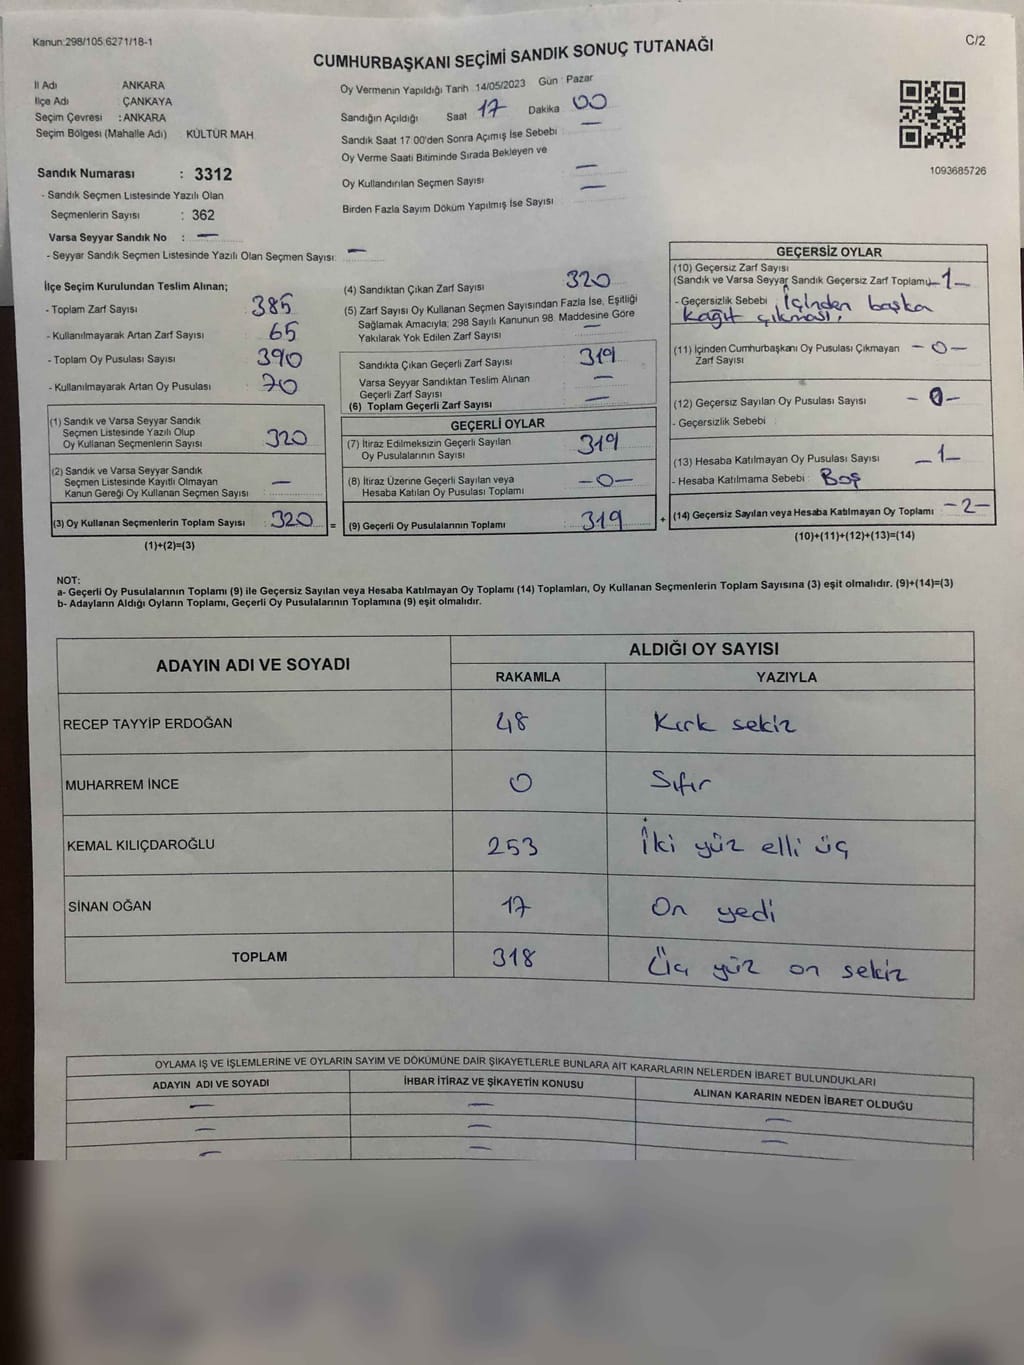 Kanun:298/105;6271/18-1
C/2
CUMHURBAŞKANI SEÇİMİ SANDIK SONUÇ TUTANAĞI
İl Adı ANKARA
İlçe Adı ÇANKAYA
Seçim Çevresi : ANKARA
Seçim Bölgesi (Mahalle Adı) KÜLTÜR MAH
Oy Vermenin Yapıldığı Tarih : 14/05/2023 Gün : Pazar
Sandığın Açıldığı Saat 17 Dakika 00
Sandık Saat 17:00'den Sonra Açılmış İse Sebebi : —
Oy Verme Saati Bitiminde Sırada Bekleyen ve
Oy Kullandırılan Seçmen Sayısı —
Birden Fazla Sayım Döküm Yapılmış İse Sayısı —
1093685726
Sandık Numarası : 3312
- Sandık Seçmen Listesinde Yazılı Olan
Seçmenlerin Sayısı : 362
Varsa Seyyar Sandık No : —
- Seyyar Sandık Seçmen Listesinde Yazılı Olan Seçmen Sayısı: —
İlçe Seçim Kurulundan Teslim Alınan;
- Toplam Zarf Sayısı 385
- Kullanılmayarak Artan Zarf Sayısı 65
- Toplam Oy Pusulası Sayısı 390
- Kullanılmayarak Artan Oy Pusulası 70
(1) Sandık ve Varsa Seyyar Sandık
Seçmen Listesinde Yazılı Olup
Oy Kullanan Seçmenlerin Sayısı 320
(2) Sandık ve Varsa Seyyar Sandık
Seçmen Listesinde Kayıtlı Olmayan
Kanun Gereği Oy Kullanan Seçmen Sayısı —
(3) Oy Kullanan Seçmenlerin Toplam Sayısı : 320 =
(1)+(2)=(3)
(4) Sandıktan Çıkan Zarf Sayısı 320
(5) Zarf Sayısı Oy Kullanan Seçmen Sayısından Fazla İse, Eşitliği
Sağlamak Amacıyla; 298 Sayılı Kanunun 98. Maddesine Göre
Yakılarak Yok Edilen Zarf Sayısı —
Sandıkta Çıkan Geçerli Zarf Sayısı 319
Varsa Seyyar Sandıktan Teslim Alınan
Geçerli Zarf Sayısı —
(6) Toplam Geçerli Zarf Sayısı —
GEÇERLİ OYLAR
(7) İtiraz Edilmeksizin Geçerli Sayılan
Oy Pusulalarının Sayısı 319
(8) İtiraz Üzerine Geçerli Sayılan veya
Hesaba Katılan Oy Pusulası Toplamı -0-
(9) Geçerli Oy Pusulalarının Toplamı : 319 +
GEÇERSİZ OYLAR
(10) Geçersiz Zarf Sayısı
(Sandık ve Varsa Seyyar Sandık Geçersiz Zarf Toplamı) -1-
- Geçersizlik Sebebi İçinden başka
kağıt çıkması.
(11) İçinden Cumhurbaşkanı Oy Pusulası Çıkmayan
Zarf Sayısı -0-
(12) Geçersiz Sayılan Oy Pusulası Sayısı -0-
- Geçersizlik Sebebi :
(13) Hesaba Katılmayan Oy Pusulası Sayısı -1-
- Hesaba Katılmama Sebebi : Boş
(14) Geçersiz Sayılan veya Hesaba Katılmayan Oy Toplamı -2-
(10)+(11)+(12)+(13)=(14)
NOT:
a- Geçerli Oy Pusulalarının Toplamı (9) ile Geçersiz Sayılan veya Hesaba Katılmayan Oy Toplamı (14) Toplamları, Oy Kullanan Seçmenlerin Toplam Sayısına (3) eşit olmalıdır. (9)+(14)=(3)
b- Adayların Aldığı Oyların Toplamı, Geçerli Oy Pusulalarının Toplamına (9) eşit olmalıdır.
ADAYIN ADI VE SOYADI ALDIĞI OY SAYISI
RAKAMLA YAZIYLA
RECEP TAYYİP ERDOĞAN 48 Kırk sekiz
MUHARREM İNCE 0 Sıfır
KEMAL KILIÇDAROĞLU 253 İki yüz elli üç
SİNAN OĞAN 17 On yedi
TOPLAM 318 Üç yüz on sekiz
OYLAMA İŞ VE İŞLEMLERİNE VE OYLARIN SAYIM VE DÖKÜMÜNE DAİR ŞİKAYETLERLE BUNLARA AİT KARARLARIN NELERDEN İBARET BULUNDUKLARI
ADAYIN ADI VE SOYADI İHBAR İTİRAZ VE ŞİKAYETİN KONUSU ALINAN KARARIN NEDEN İBARET OLDUĞU
— — —
— — —
— —